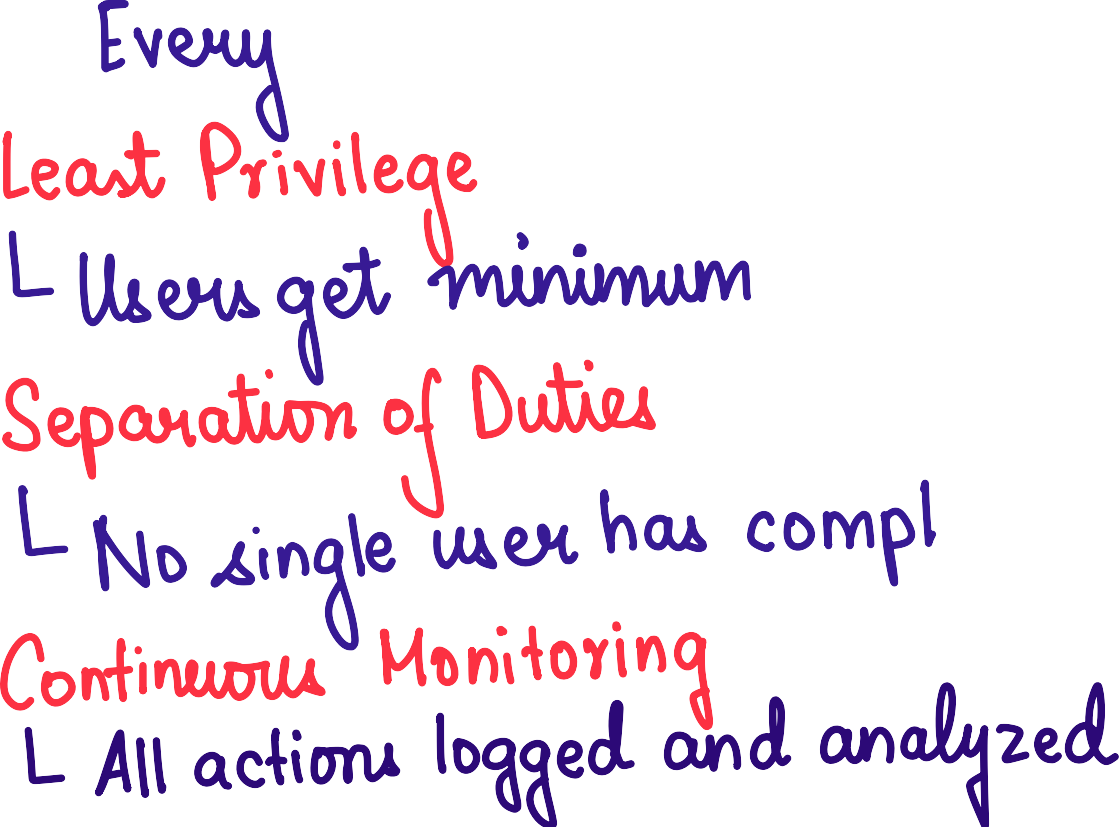 Every
Least Privilege
Users get minimum
Separation of Duties
No single user has compl
Continuous Monitoring
All actions logged and analyzed